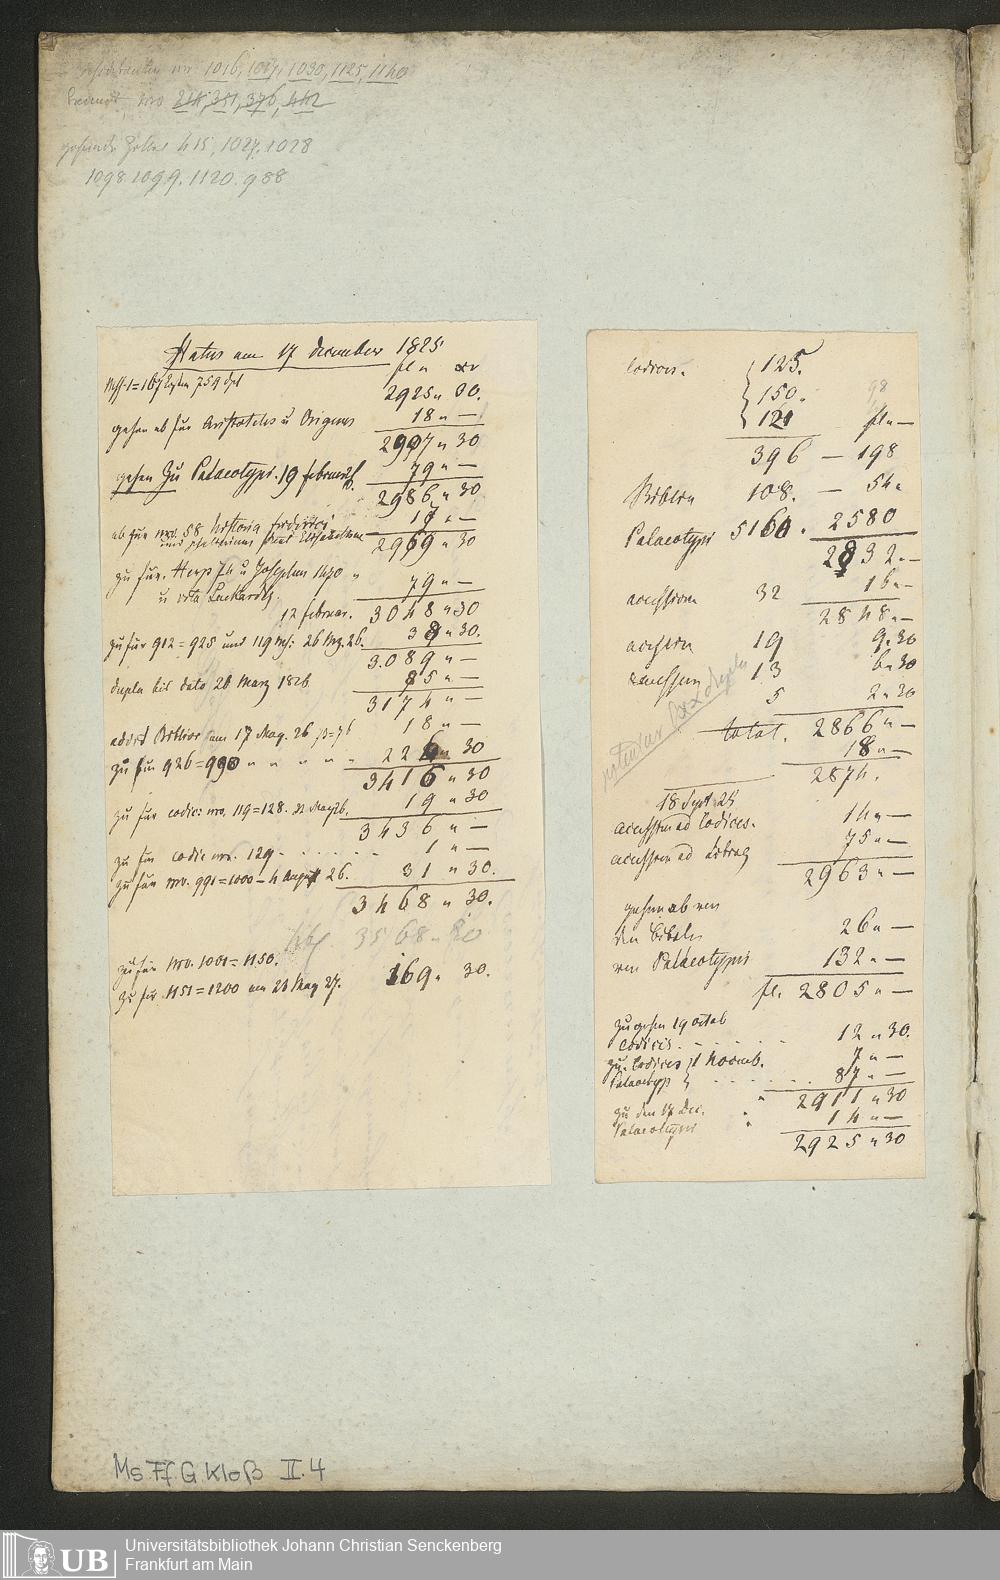 nro 1016, 1017, 1030, 1125, 1140
nro 214, 351, 376, 442
415, 1027. 1028
1098. 1099. 1120. 988
Status am 17 December 1825
fl " xr
2925 " 30.
gehen ab für Aristoteles u Origenes 18 " —
2907 " 30
gehen zu Palaeotypi. 19 februar 79 " —
2986 " 30
ab für nro. 58 historia friderici 17 " —
2969 " 30
zu für Herp fh u Josephum 1470 "
u vita Luckardis 79 " —
12 februar. 3048 " 30
zu für 912 = 925 und 119 Ms: 26 Mz. 26. 38 " 30.
3089 " —
dupla bis dato 26 März 1826 85 " —
3174 " —
am 17 May. 26 18 " —
zu für 926 = 990 " " " " " 224 " 30
3416 " 30
zu für codic: nro. 119 = 128. 22 May 26. 19 " 30
3436 " —
zu für codic nro. 129 - . . . . . 1 " —
zu für nro. 991 = 1000 - 4 August 26. 31 " 30.
3468 " 30.
3568 " 20
zu für nro. 1001 = 1150.
zu für 1151 = 1200 am 21 May 27. 169 " 30.
Codices. 125.
150.
121 fl " —
98
396 — 198
Bibeln 108. — 54 "
Palaeotypi 5160 . 2580
2832 " —
accessiones 32 16 " —
2848 " —
19 9 " 30
13 6 " 30
5 2 " 30
total. 2866 " —
18 " —
2874.
18 Sept 25
accessiones ad Codices. 14 " —
accessiones ad 75 " —
2963 " —
gehen ab von
den Bibeln 26 " —
von Palaeotypis 132 " —
fl. 2805 " —
zugehen 19 octob
Codicis . - - - - - 12 " 30.
zu. Codices } 1 Novemb. 7 " —
Palaeotyp } . . . . . . . 87 " —
" 2911 " 30
zu den 17 Dec.
Palaeotypis " 14 " —
2925 " 30
Ms. Ff. G. Kloß II. 4
UB
Universitätsbibliothek Johann Christian Senckenberg
Frankfurt am Main